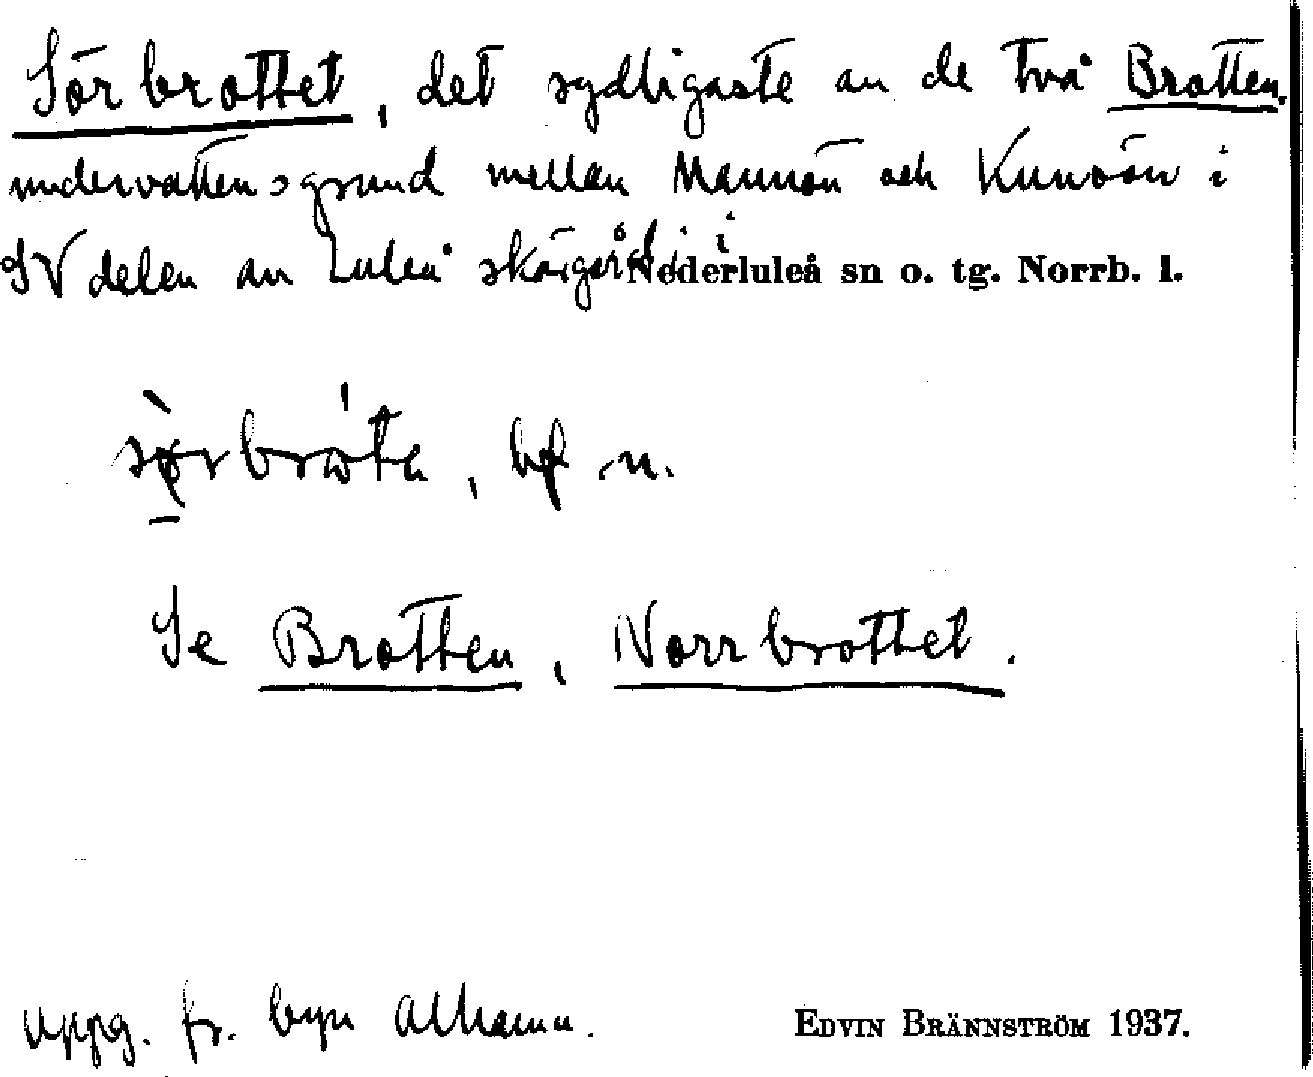 Sörbrottet, det sydligaste av de två Brotten,
undervattensgrund mellan Mannön och Kunoön i
SV delen av Luleå skärgård, i Nederluleå sn o. tg. Norrb. l.
sørbrota, bf n.
Se Brotten, Norrbrottet.
Uppg. fr. byn Alhamn.
EDVIN BRÄNNSTRÖM 1937.